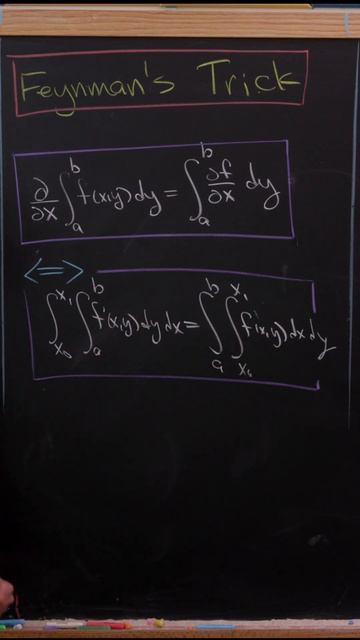 Feynman's Trick
∂/∂x ∫_a^b f(x,y) dy = ∫_a^b ∂f/∂x dy
<=>
∫_{x₀}^{x₁} ∫_a^b f'(x,y) dy dx = ∫_a^b ∫_{x₀}^{x₁} f'(x,y) dx dy